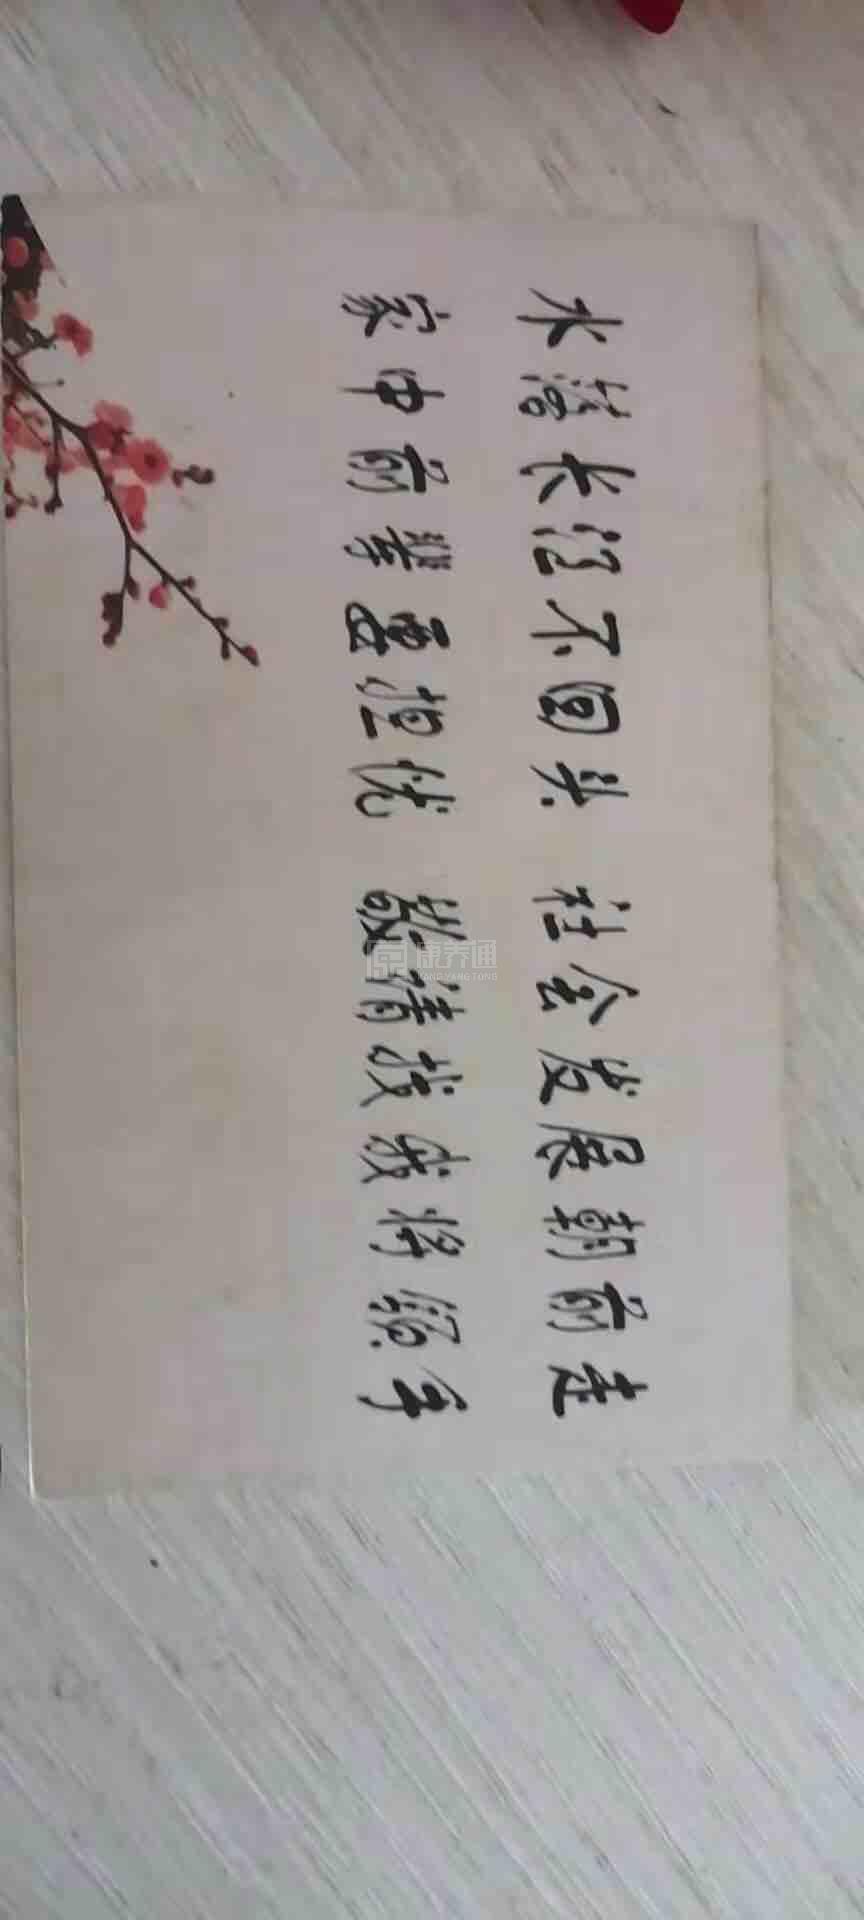 水落长江不回头 社会发展朝前走
家中前辈要担忧 敬请找我将领手
康养通
KANGYANGTONG